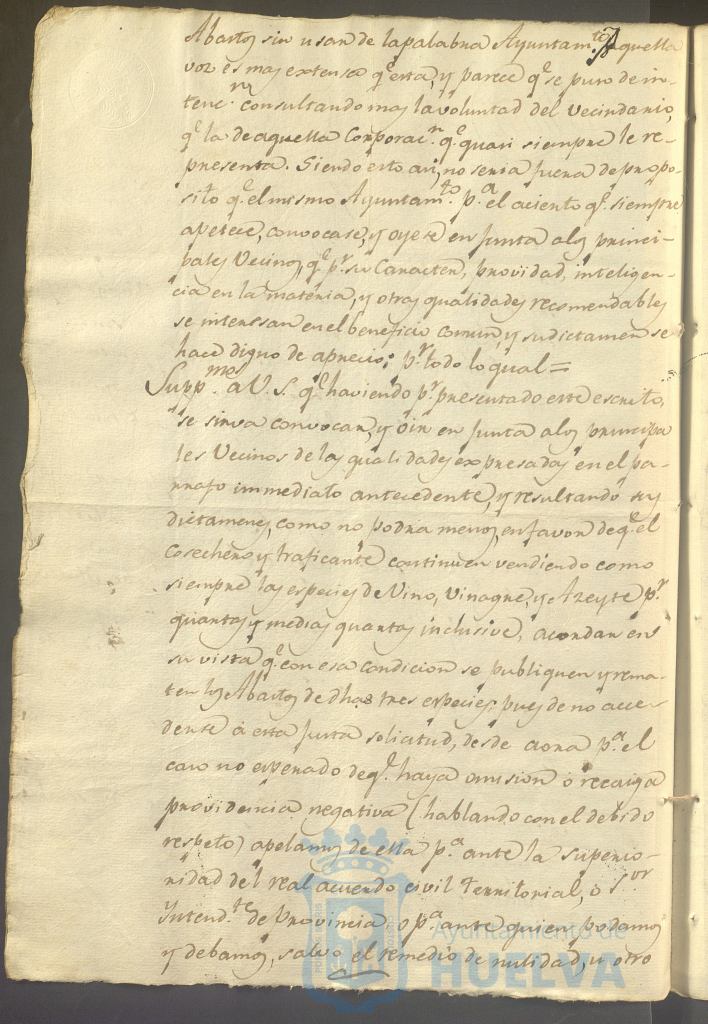 Abastos sin usar de la palabra Ayuntam.to, aquella
voz es mas extensa q.e esta, y parece q.e se puso de in-
tenc.n consultando mas la voluntad del vecindario,
q.e la de aquella Corporac.n q.e quasi siempre le re-
presenta. Siendo esto asi, no seria fuera de propo-
sito q.e el mismo Ayuntam.to p.a el acierto q.e siempre
apetece, convocase, y oyese en Junta a los princi-
pales Vecinos, q.e p.r su Caracter, providad, inteligen-
cia en la materia, y otras qualidades recomendables
se interesan en el beneficio comun, y su dictamen se
hace digno de aprecio; p.r todo lo qual =
Supp.mos a V. S. q.e haviendo p.r presentado este escrito,
se sirva convocar, y oir en Junta a los principa
les Vecinos de las qualidades expresadas en el pa-
rrafo immediato antecedente, y resultando sus
dictamenes, como no podra menos, en favor de q.e el
Cosechero y traficante continuen vendiendo como
siempre las especies de Vino, Vinagre, y Azeyte p.r
quartas y medias quartas inclusive, acordar en
su vista q.e con esa condicion se publiquen y rema-
ten los Abastos de dhas tres especies; pues de no acce-
derse á esta justa solicitud, desde aora p.a el
caso no esperado de q.e haya omision ó recaiga
providencia negativa (hablando con el debido
respeto) apelamos de ella p.a ante la superio-
ridad del real acuerdo civil territorial, ó S.or
Intend.te de Provincia, o p.a ante quien podamos
y debamos, salvo el remedio de nulidad, u otro
Ayuntamiento de
HUELVA